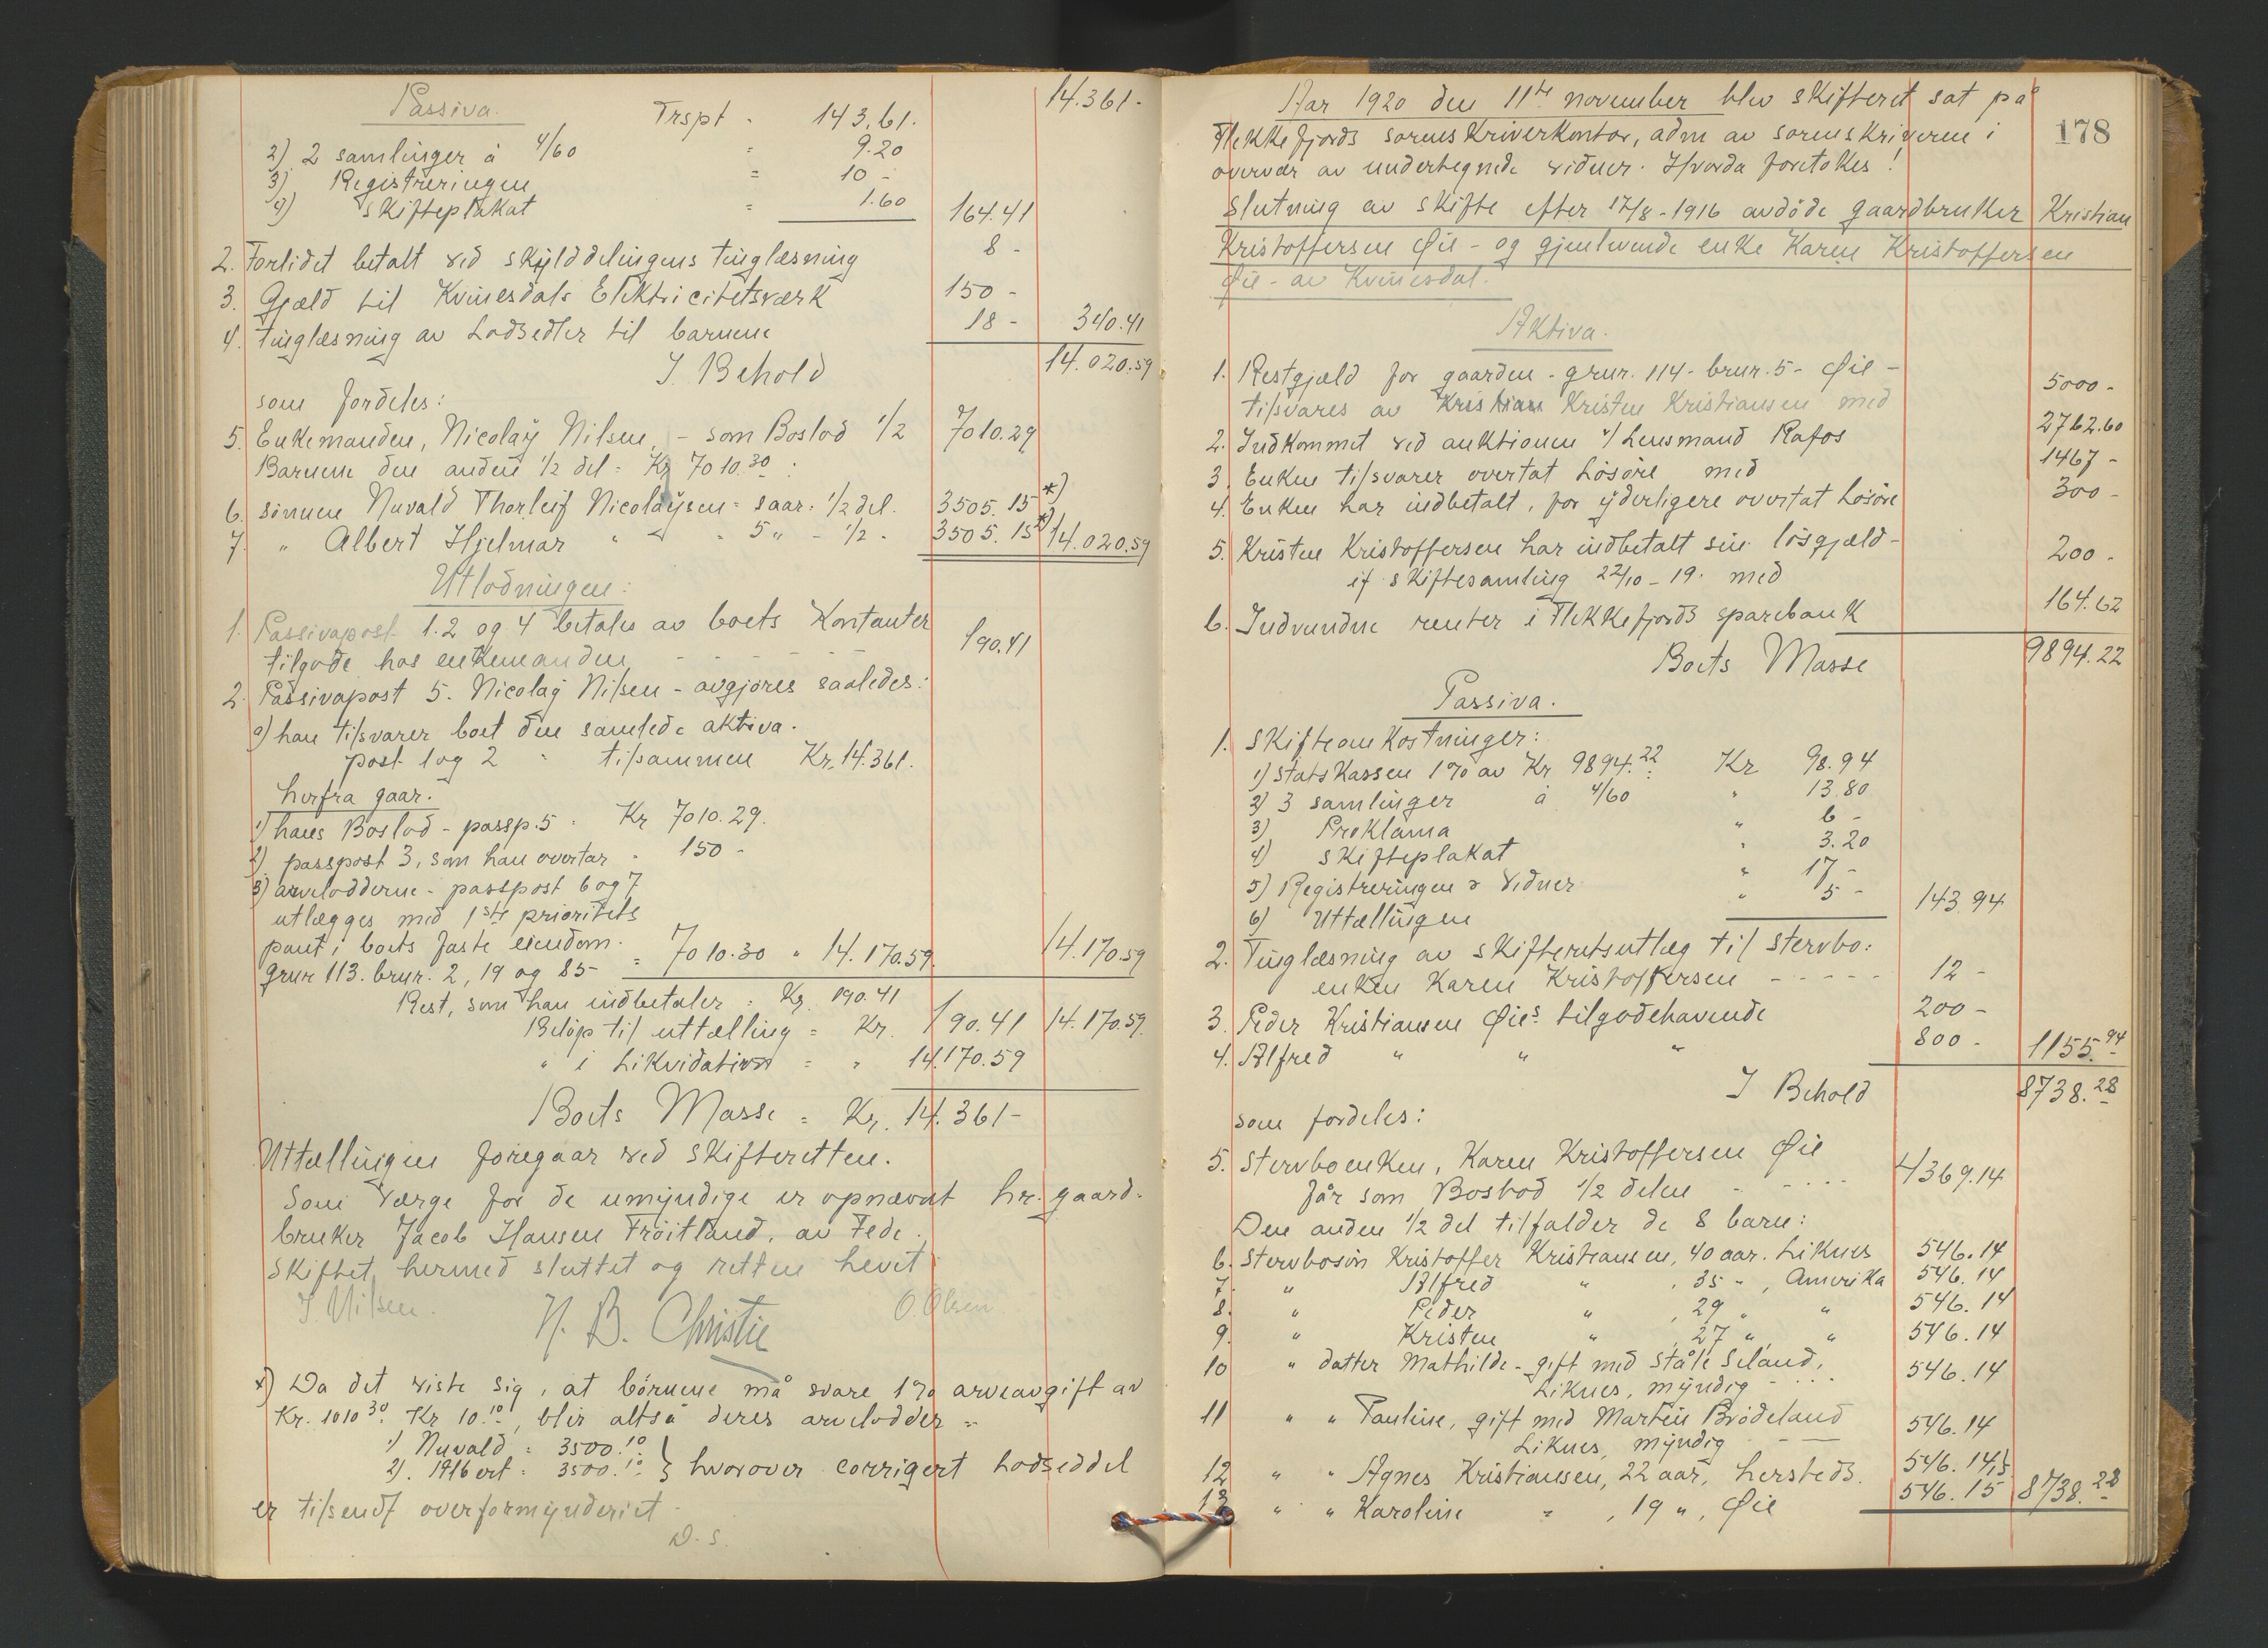 Passiva.
Trspt. 143.61. 14.361-
2) 2 samlinger à 4/60 = 9.20
3) Registreringen = 10-
4) Skifteplakat = 1.60 164.41
2. Forlidet betalt ved skylddelingens tinglæsning 8-
3. Gjæld til Kvinesdals Elektricitetsværk 150-
4. tinglæsning av Lodsedler til barnene 18- 340.41
I Behold 14.020.59
som fordeles:
5. Enkemanden, Nicolaÿ Nilsen, - som Boslod 1/2 7010.29
Barnene den anden 1/2 del = Kr 7010.30:
6. Sønnen Nuvald Thorleif Nicolaÿsen = saar: 1/2 del. 3505.15 *)
7. " Albert Hjelmar " " 5 " - 1/2 - 3505.15 *) 14.020.59
Utlodningen:
1. Passivapost 1.2 og 4 betales av boets Kontanter
tilgode hos enkemanden - - - - - - 190.41
2. Passivapost 5. Nicolaÿ Nilsen - avgjøres saaledes:
a) han tilsvarer boet den samlede aktiva.
post 1 og 2 = tilsammen Kr. 14.361.
herfra gaar:
1) hans Boslod - passp. 5 = Kr 7010.29.
2) passpost 3, som han overtar = 150-
3) arvelodderne - passpost 6 og 7
utlægges med 1ste prioritets
pant i boets faste eiendom.
grnr 113. brnr. 2, 19 og 85- = 7010.30 " 14.170.59. 14.170.59
Rest, som han indbetaler = Kr. 190.41
Beløp til uttælling = Kr. 190.41 14.170.59
" i Likvidation = " 14.170.59
Boets Masse = Kr. 14.361-
Uttællingen foregaar ved skifteretten.
Som Værge for de umÿndige er opnævnt hr. gaard-
bruker Jacob Hansen Frøitland, av Fede.
Skiftet hermed sluttet og retten hevet
J. Nilsen. N. B. Christie O. Olsen
*) Da det viste sig, at børnene må svare 1% arveavgift av
Kr. 1010 30: Kr 10.10, blir altså deres arvelodder =
1) Nuvald = 3500.10
2). Albert = 3500.10 } hvorover corrigert Lodseddel
er tilsendt overformÿnderiet -
D. S.
178
Aar 1920 den 11te november blev skifteret sat på
Flekkefjords sorenskriverkontor, adm av sorenskriveren i
overvær av undertegnede vidner. Hvorda foretokes!
Slutning av skifte efter 17/8-1916 avdøde gaardbruker Kristian
Kristoffersen Øie - og gjenlevende enke Karen Kristoffersen
Øie - av Kvinesdal.
Aktiva.
1. Restgjæld for gaarden - grnr. 114 - brnr. 5 - Øie -
tilsvares av Kristian Kristen Kristiansen med 5000-
2. Indkommet ved auktionen v/ Lensmand Rafos 2762.60
3. Enken tilsvarer overtat Løsøre med 1467-
4. Enken har indbetalt, for ÿderligere overtat Løsøre 300-
5. Kristen Kristoffersen har indbetalt sin løsgjæld -
if skiftesamling 22/10-19. med 200.
6. Indvundne renter i Flekkefjords sparebank 164.62
Boets Masse 9894.22
Passiva.
1. Skifteomkostninger:
1) Statskassen 1% av Kr 9894.22: Kr 98.94
2) 3 samlinger à 4/60 " 13.80
3) Proklama " 6-
4) Skifteplakat " 3.20
5) Registreringen & vidner " 17-
6) Uttællingen " 5- 143.94
2. Tinglæsning av skifteretsutlæg til stervbo:
enken Karen Kristoffersen - - - - - 12-
3. Peder Kristiansen Øies tilgodehavende 200-
4. Alfred " " " 800- 1155.94
I Behold 8738.28
som fordeles:
5. Stervboenken, Karen Kristoffersen Øie
får som Boslod 1/2 delen - - - - - 4369.14
Den anden 1/2 del tilfalder de 8 barn:
6. Stervbosøn Kristoffer Kristiansen, 40 aar. Liknes 546.14
7. " Alfred " , 35 " , Amerika 546.14
8. " Peder " , 29 " " 546.14
9. " Kristen " , 27 " " 546.14
10 " datter Mathilde - gift med Ståle Seland,
Liknes, mÿndig - - - - 546.14
11 " " Pauline, gift med Martin Brødeland
Liknes, mÿndig - - 546.14
12 " " Agnes Kristiansen, 22 aar, hersteds. 546.145
13 " " Karoline = , 19 " , Øie 546.15 8738.28